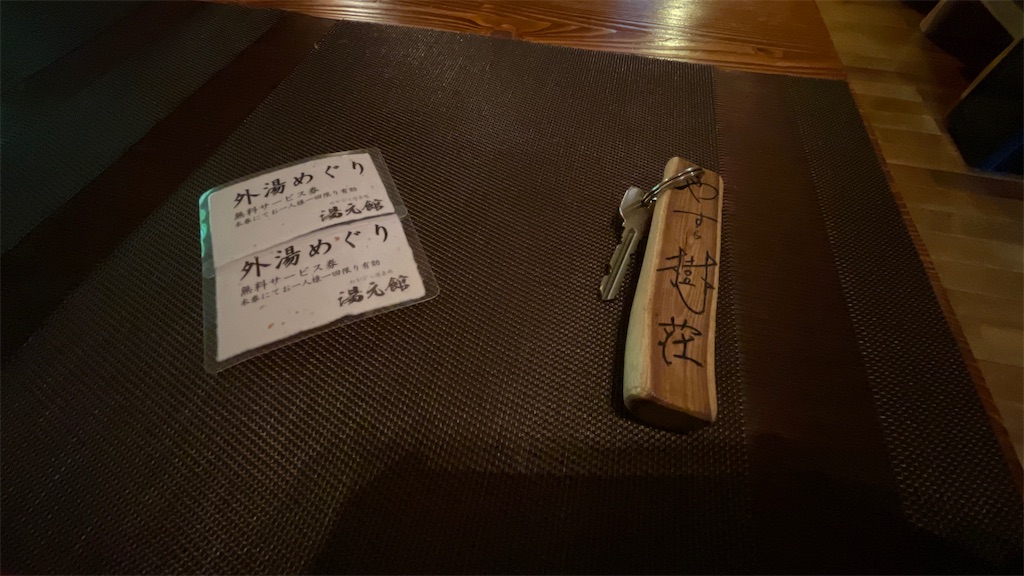 外湯めぐり
無料サービス券
本券にてお一人様一回限り有効
湯元館
外湯めぐり
無料サービス券
本券にてお一人様一回限り有効
湯元館
樹荘